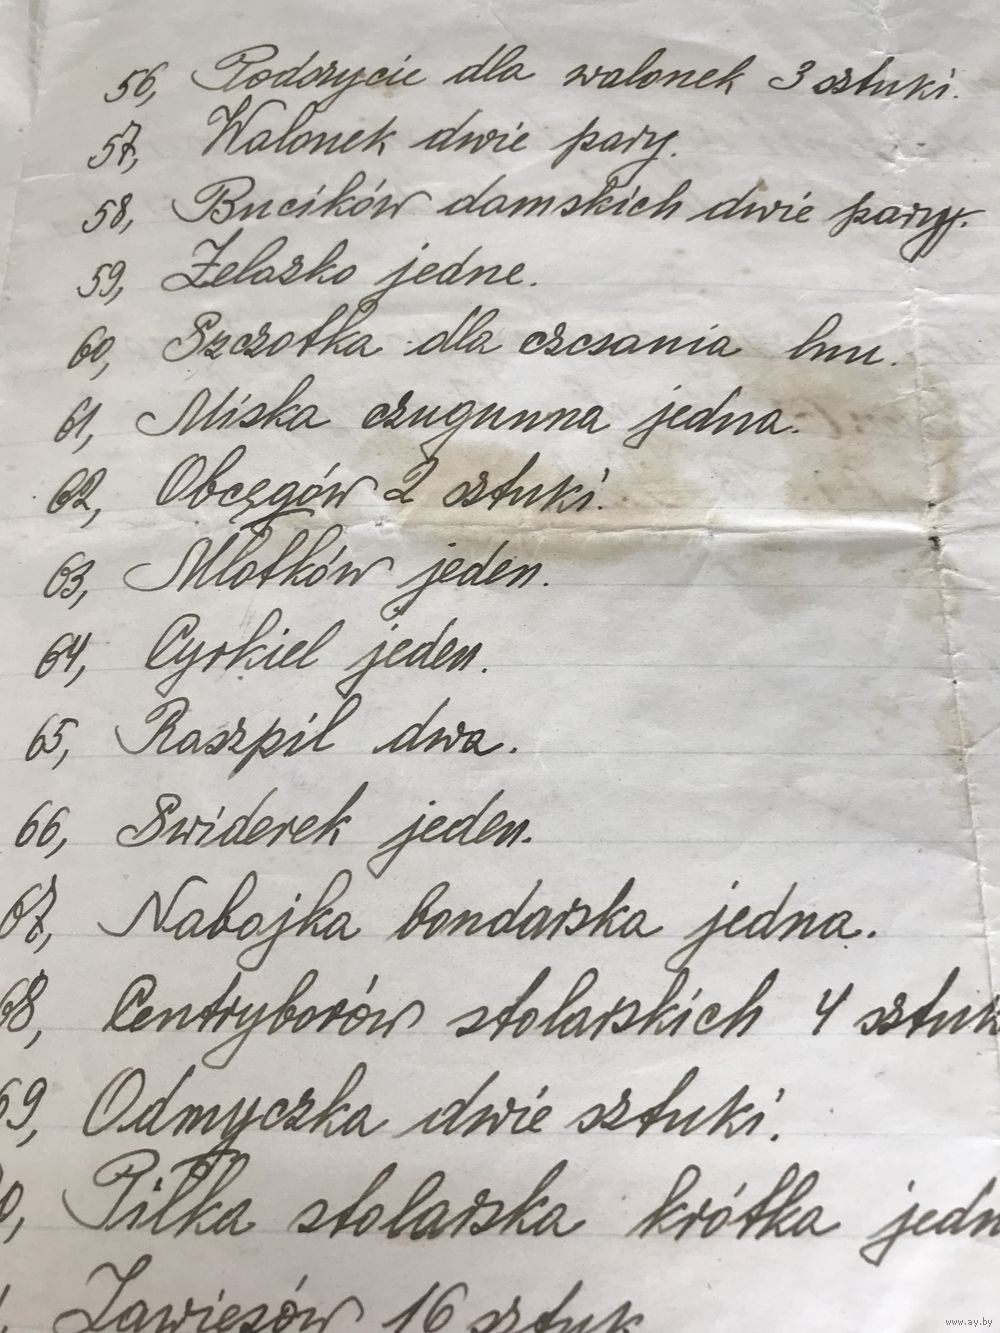 56, Podszycie dla walonek 3 sztuki.
57, Walonek dwie pary.
58, Bucików damskich dwie pary.
59, Żelazko jedne.
60, Szczotka dla czesania lnu.
61, Miska czugunna jedna.
62, Obcęgów 2 sztuki.
63, Młotków jeden.
64, Cyrkiel jeden.
65, Raszpil dwa.
66, Swiderek jeden.
67, Nabojka bondarska jedna.
68, Centryborów stolarskich 4 sztuk
69, Odmyczka dwie sztuki.
0, Piłka stolarska krótka jedn
Zawiesów 16 sztuk
www.ay.by